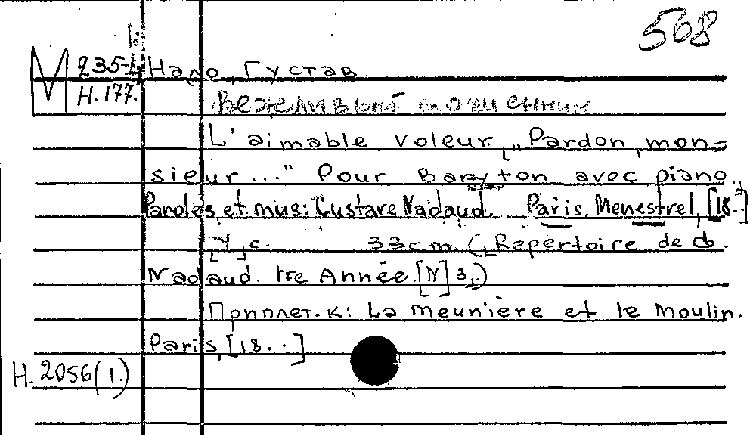 568
М 235-
Н.177.
Надо, Густав
Вежливый мошенник
L'aimable voleur „Pardon, mon=
sieur..." Pour Baryton avec piano.
Paroles et mus: Gustave Nadaud. Paris, Menestrel, [18..]
c. 33 cm. (Repertoire de G.
Nadaud. 1re Année. [N] 3.)
Приплет. к: La meunière et le moulin.
Paris, [18..]
Н. 2056(1.)